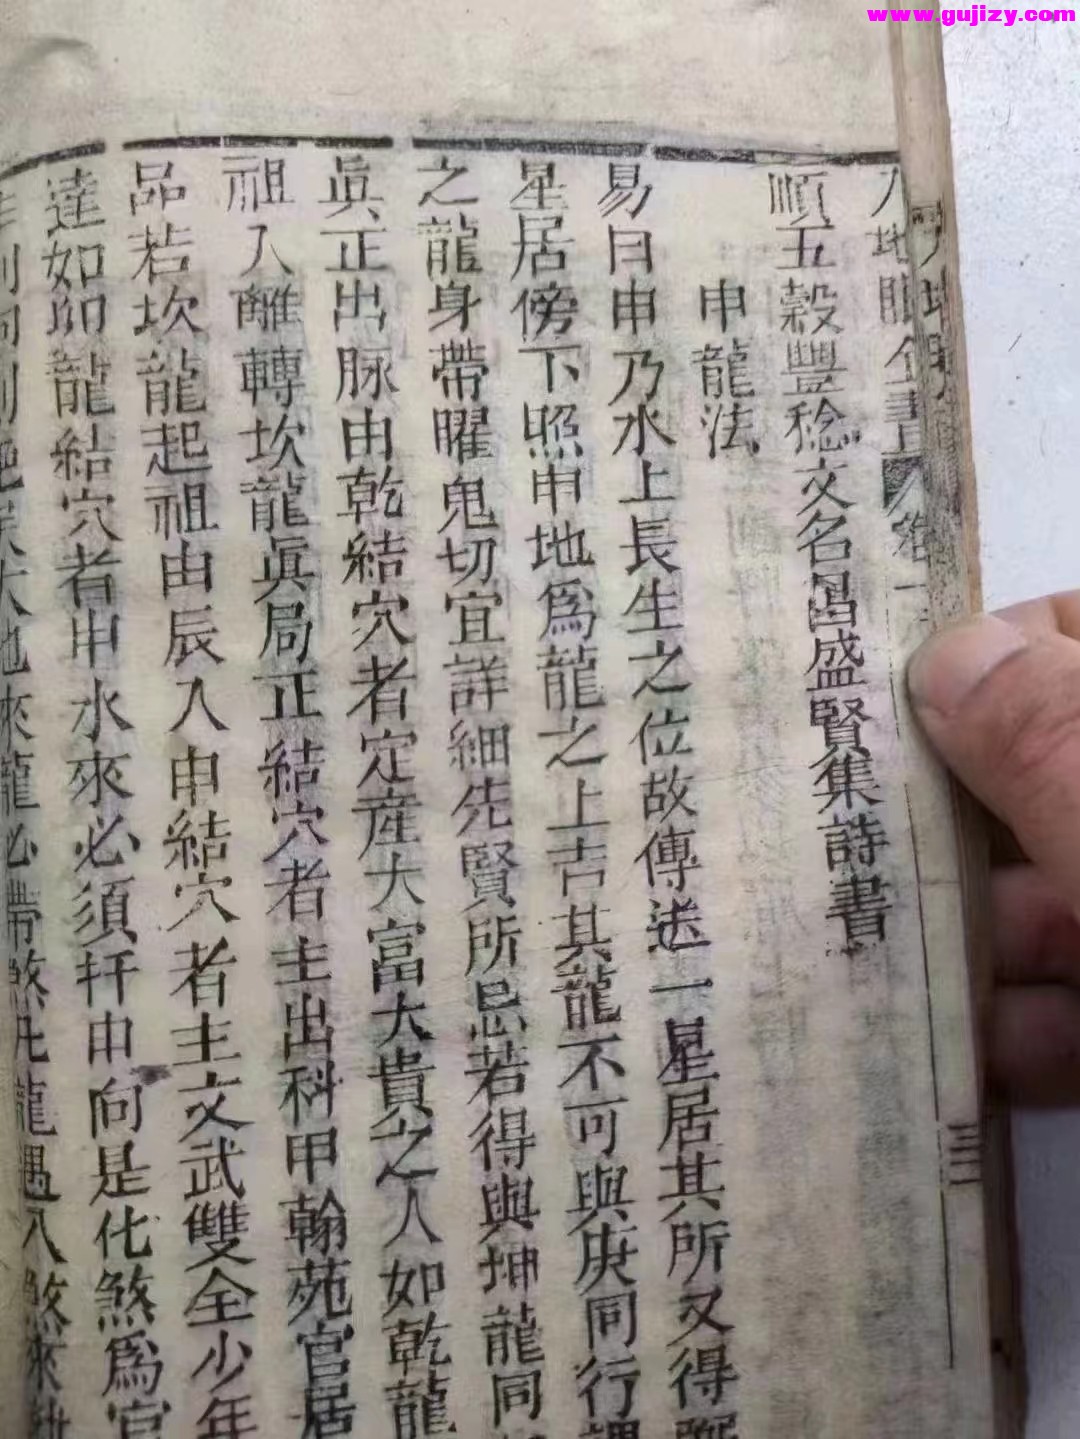 www.gujizy.com
地眼全書
三二
順五穀豐稔文名昌盛賢集詩書
申龍法
易曰申乃水上長生之位故傳送一星居其所又得
星居傍下照申地爲龍之上吉其龍不可與庚同行
之龍身帶曜鬼切宜詳細先賢所忌若得與坤龍同
眞正出脉由乾結穴者定産大富大貴之人如乾龍
祖入離轉坎龍眞局正結穴者主出科甲翰苑官居
品若坎龍起祖由辰入申結穴者主文武雙全少年
達如卯龍結穴者申水來必須扦申向是化煞爲官
大地來龍必帶煞凡龍遇八煞來